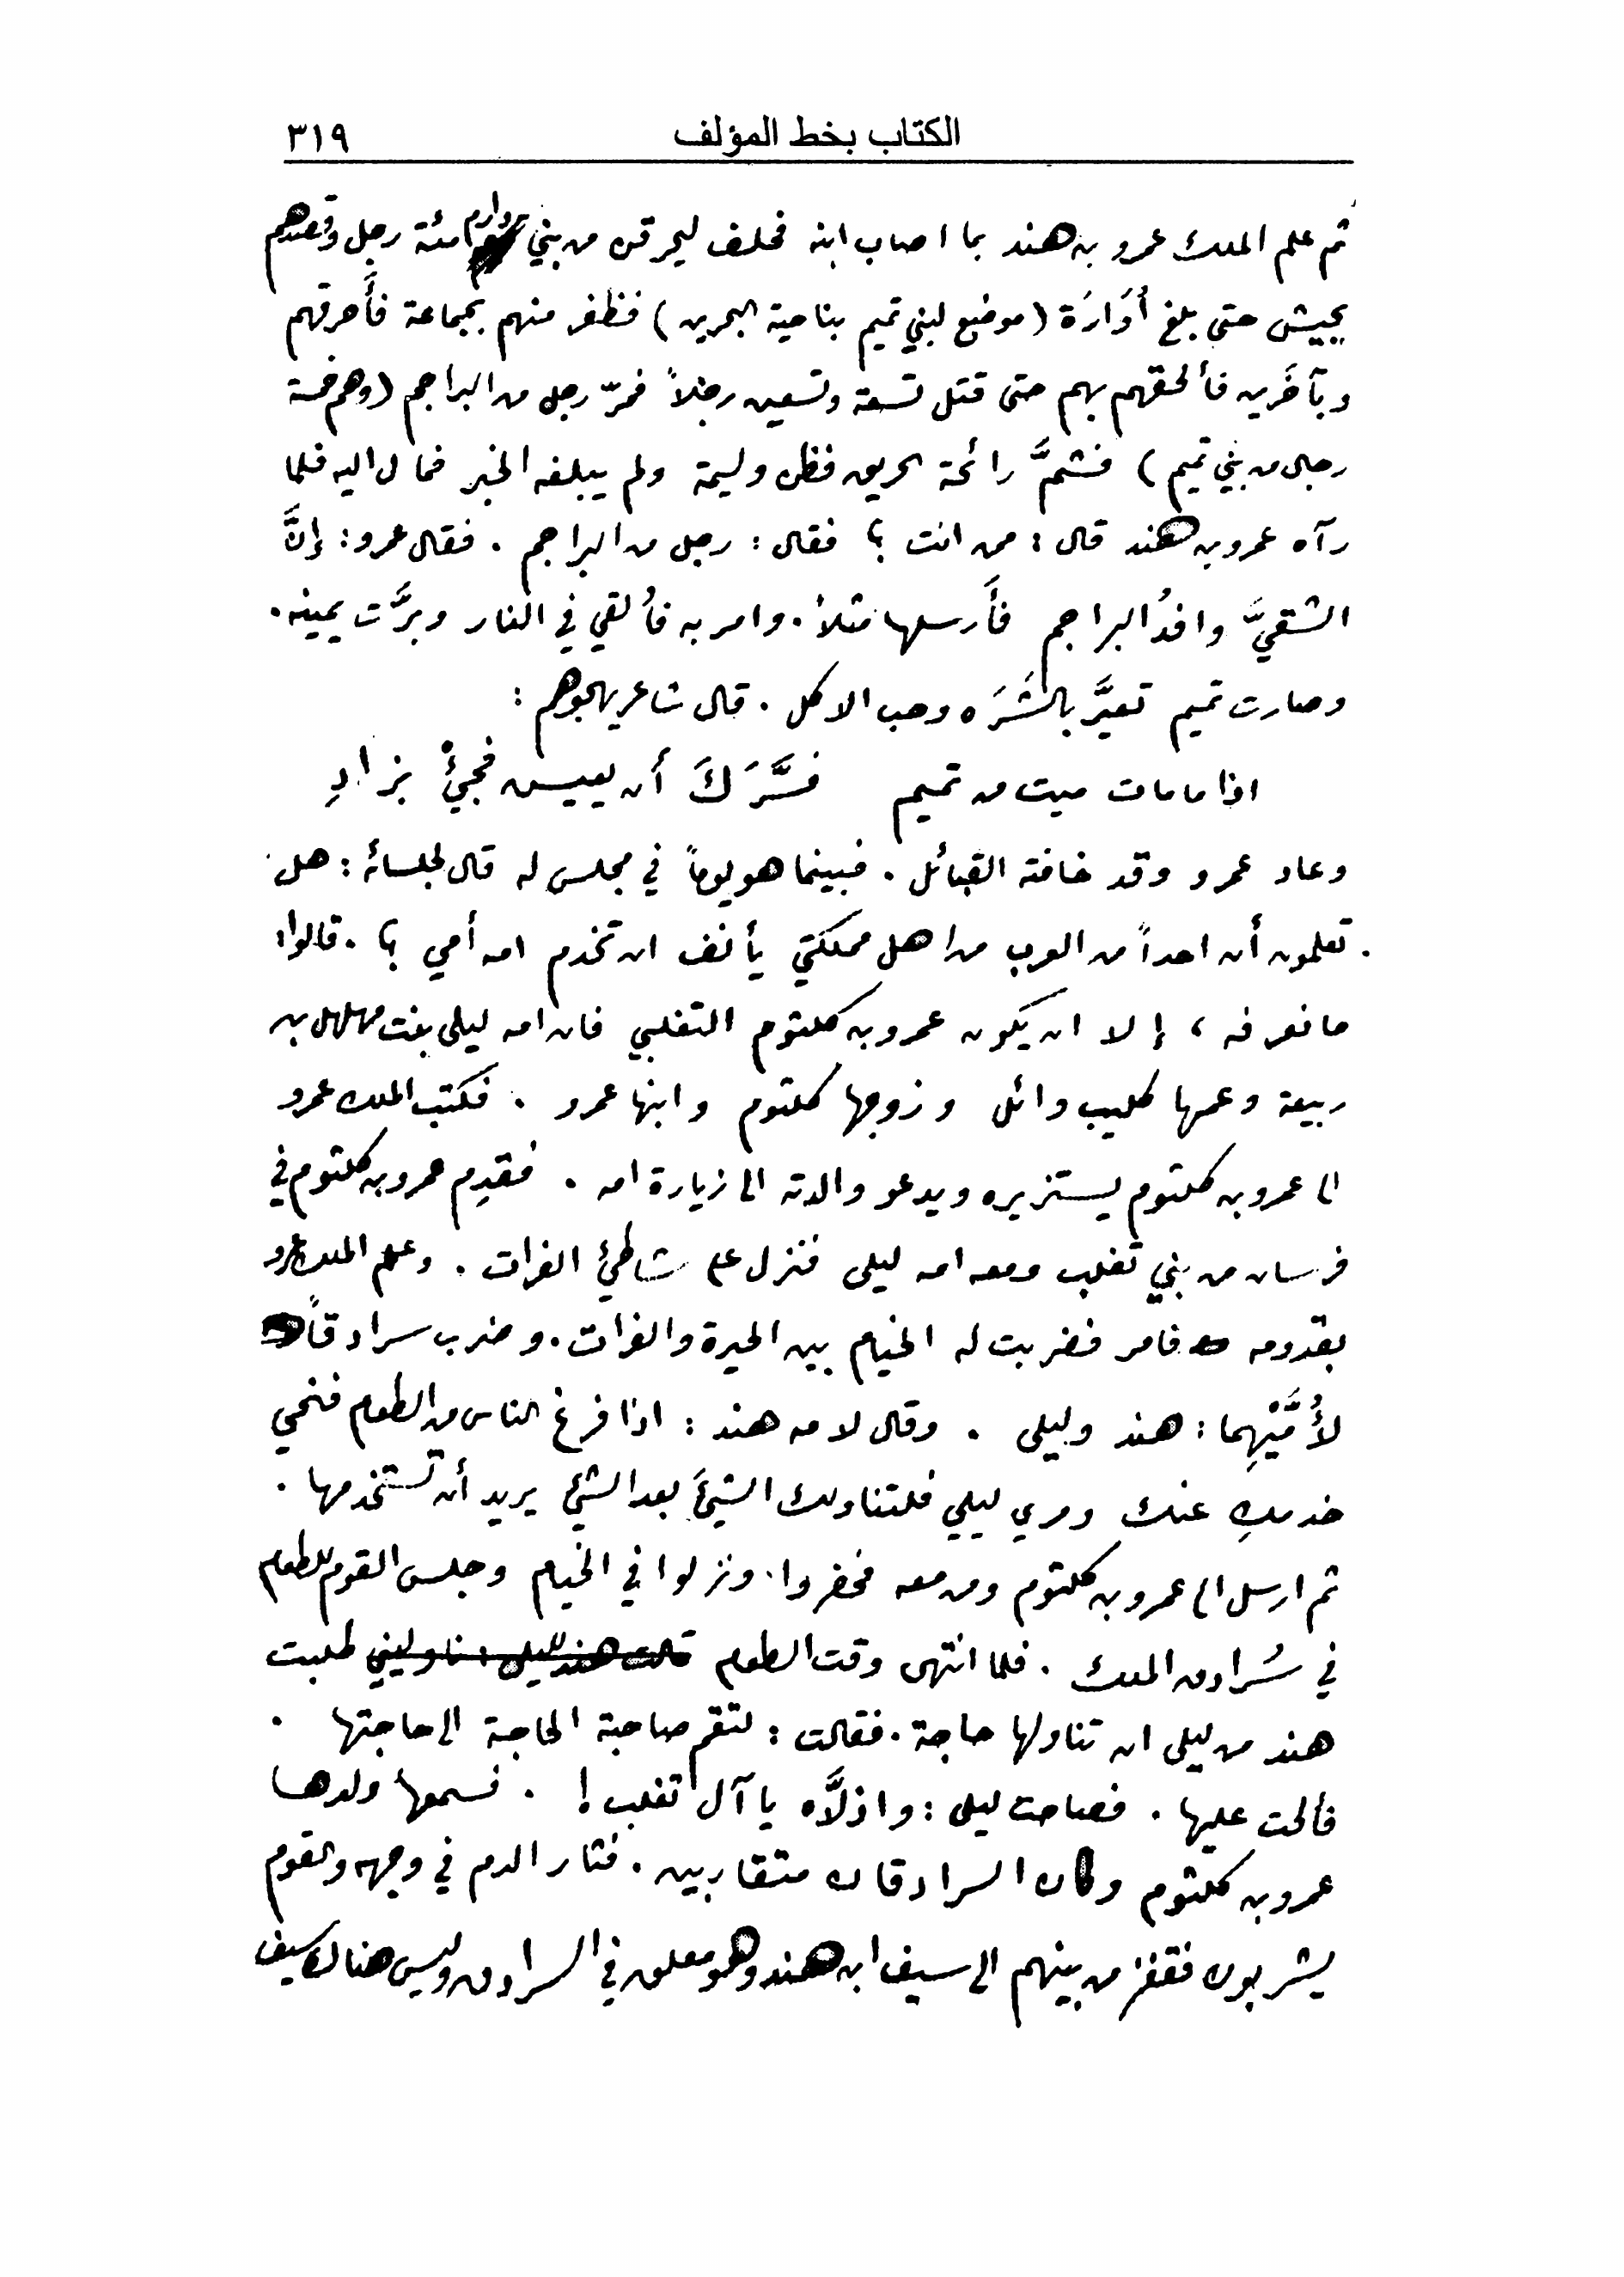 الكتاب بخط المؤلف ٣١٩
ثم علم الملك عمرو بن هند بما اصاب ابنه فحلف ليحرقن من بني دارم مئة رجل وقصدهم
بجيش حتى بلغ أُوَارَة (موضع لبني تميم بناحية البحرين) فظفر منهم بجماعة فأَحرقهم
وبآخَرين فألحقهم بهم حتى قتل تسعة وتسعين رجلاً فمرّ رجل من البراجم (وهم خمسة
رجال من بني تميم) فشمَّ رائحة الحريق فظن وليمة ولم يبلغه الخبر فمال اليه فلما
رآه عمرو بن هند قال : ممن انت ؟ فقال : رجل من البراجم . فقال عمرو : إنَّ
الشقيَّ وافدُ البراجم فأَرسلها مثلاً . وامر به فأُلقي في النار وبرَّت يمينه .
وصارت تميم تعيَّر بالشَرَه وحب الاكل . قال شاعر يهجوهم :
اذا ما مات ميت من تميم فسَّرَكَ أن يعيش فجيْ بزادِ
وعاد عمرو وقد خافته القبائل . فبينما هو يوماً في مجلس له قال لجلسائه : هل
تعلمون أن احداً من العرب من اهل مملكتي يأنف ان تخدم امه أمي ؟ . قالوا :
ما نعرفه ، إلا ان يكون عمرو بن كلثوم التغلبي فان امه ليلى بنت مهلهل بن
ربيعة وعمها كليب وائل وزوجها كلثوم وابنها عمرو . فكتب الملك عمرو
الى عمرو بن كلثوم يستزيره ويدعو والدته الى زيارة امه . فقدِم عمرو بن كلثوم في
فرسان من بني تغلب ومعه امه ليلى فنزل على شاطئ الفرات . وعلم الملك عمرو
بقدومه فامر فضربت له الخيام بين الحيرة والفرات . وضرب سرادقاً
لأُمَّيْهِما : هند وليلى . وقال لامه هند : اذا فرغ الناس من الطعام فنحي
خدمكِ عنك ومري ليلي فلتناولك الشئَ بعد الشئ يريد أن تستخدمها .
ثم ارسل الى عمرو بن كلثوم ومن معه فحضروا . ونزلوا في الخيام وجلس القوم للطعام
في سُرادق الملك . فلما انتهى وقت الطعام قالت هند لليلى : ناوليني طلبت
هند من ليلى ان تناولها حاجة . فقالت : لتقم صاحبة الحاجة الى حاجتها .
فألحت عليها . فصاحت ليلى : واذلَّاه يا آل تغلب ! . فسمعها ولدها
عمرو بن كلثوم وكان السرادقان متقاربين . فثار الدم في وجهه والقوم
يشربون فقفز من بينهم الى سيف ابن هند وهو معلق في السرادق وليس هنالك سيف